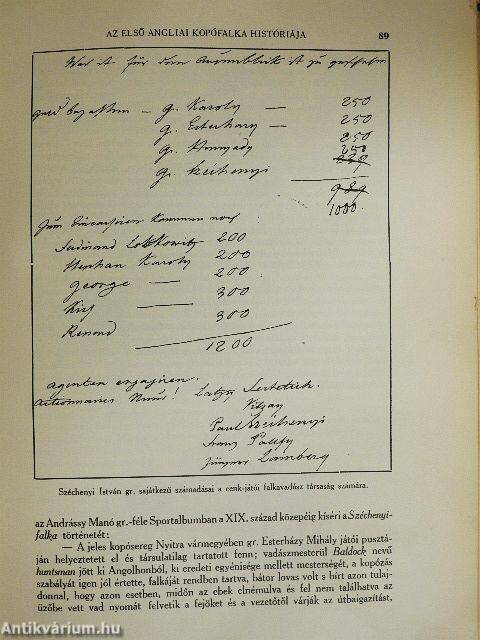 AZ ELSŐ ANGLIAI KOPÓFALKA HISTÓRIÁJA 89
für den Augenblick ist zu
— g. Karoly — 250
g. Esterhazy — 250
gr. Hunyady 250
250
gr. Széchenyi
1000
Ferdinand Lobkowitz 200
Stephan Karoly 200
george — 200
— 300
300
1200
Agenten
Actionnaires
Paul Széchenyi
Franz Palffy
Lamberg
Széchenyi István gr. sajátkezű számadásai a cenk-játói falkavadász társaság számára.
az Andrássy Manó gr.-féle Sportalbumban a XIX. század közepéig kíséri a Széchenyi-
falka történetét:
— A jeles kopósereg Nyitra vármegyében gr. Esterházy Mihály játói pusztá-
ján helyeztetett el és társulatilag tartatott fenn; vadászmesterül Baldock nevű
huntsman jött ki Angolhonból, ki eredeti egyénisége mellett mesterségét, a kopózás
szabályát igen jól értette, falkáját rendben tartva, bátor lovas volt s bírt azon tulaj-
donnal, hogy azon esetben, midőn az ebek elnémulva és fel nem találhatva az
üzőbe vett vad nyomát felvetik a fejöket és a vezetőtől várják az útbaigazítást,
Antikvárium.hu